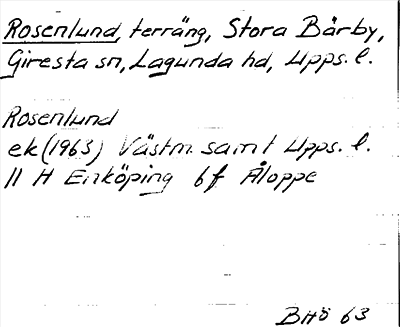 Rosenlund, terräng, Stora Bärby,
Giresta sn, Lagunda hd, Upps. l.
Rosenlund
ek (1963) Västm. samt Upps. l.
11 H Enköping 6f Åloppe
BHö 63